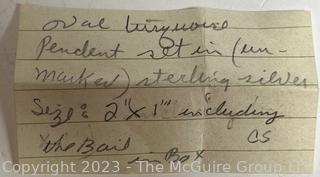 oval turquoise
Pendent set in (un-
marked) sterling silver
Size: 2"X 1" including
the Bail CS
in Box
Copyright ©2023 - The McGuire Group LLC